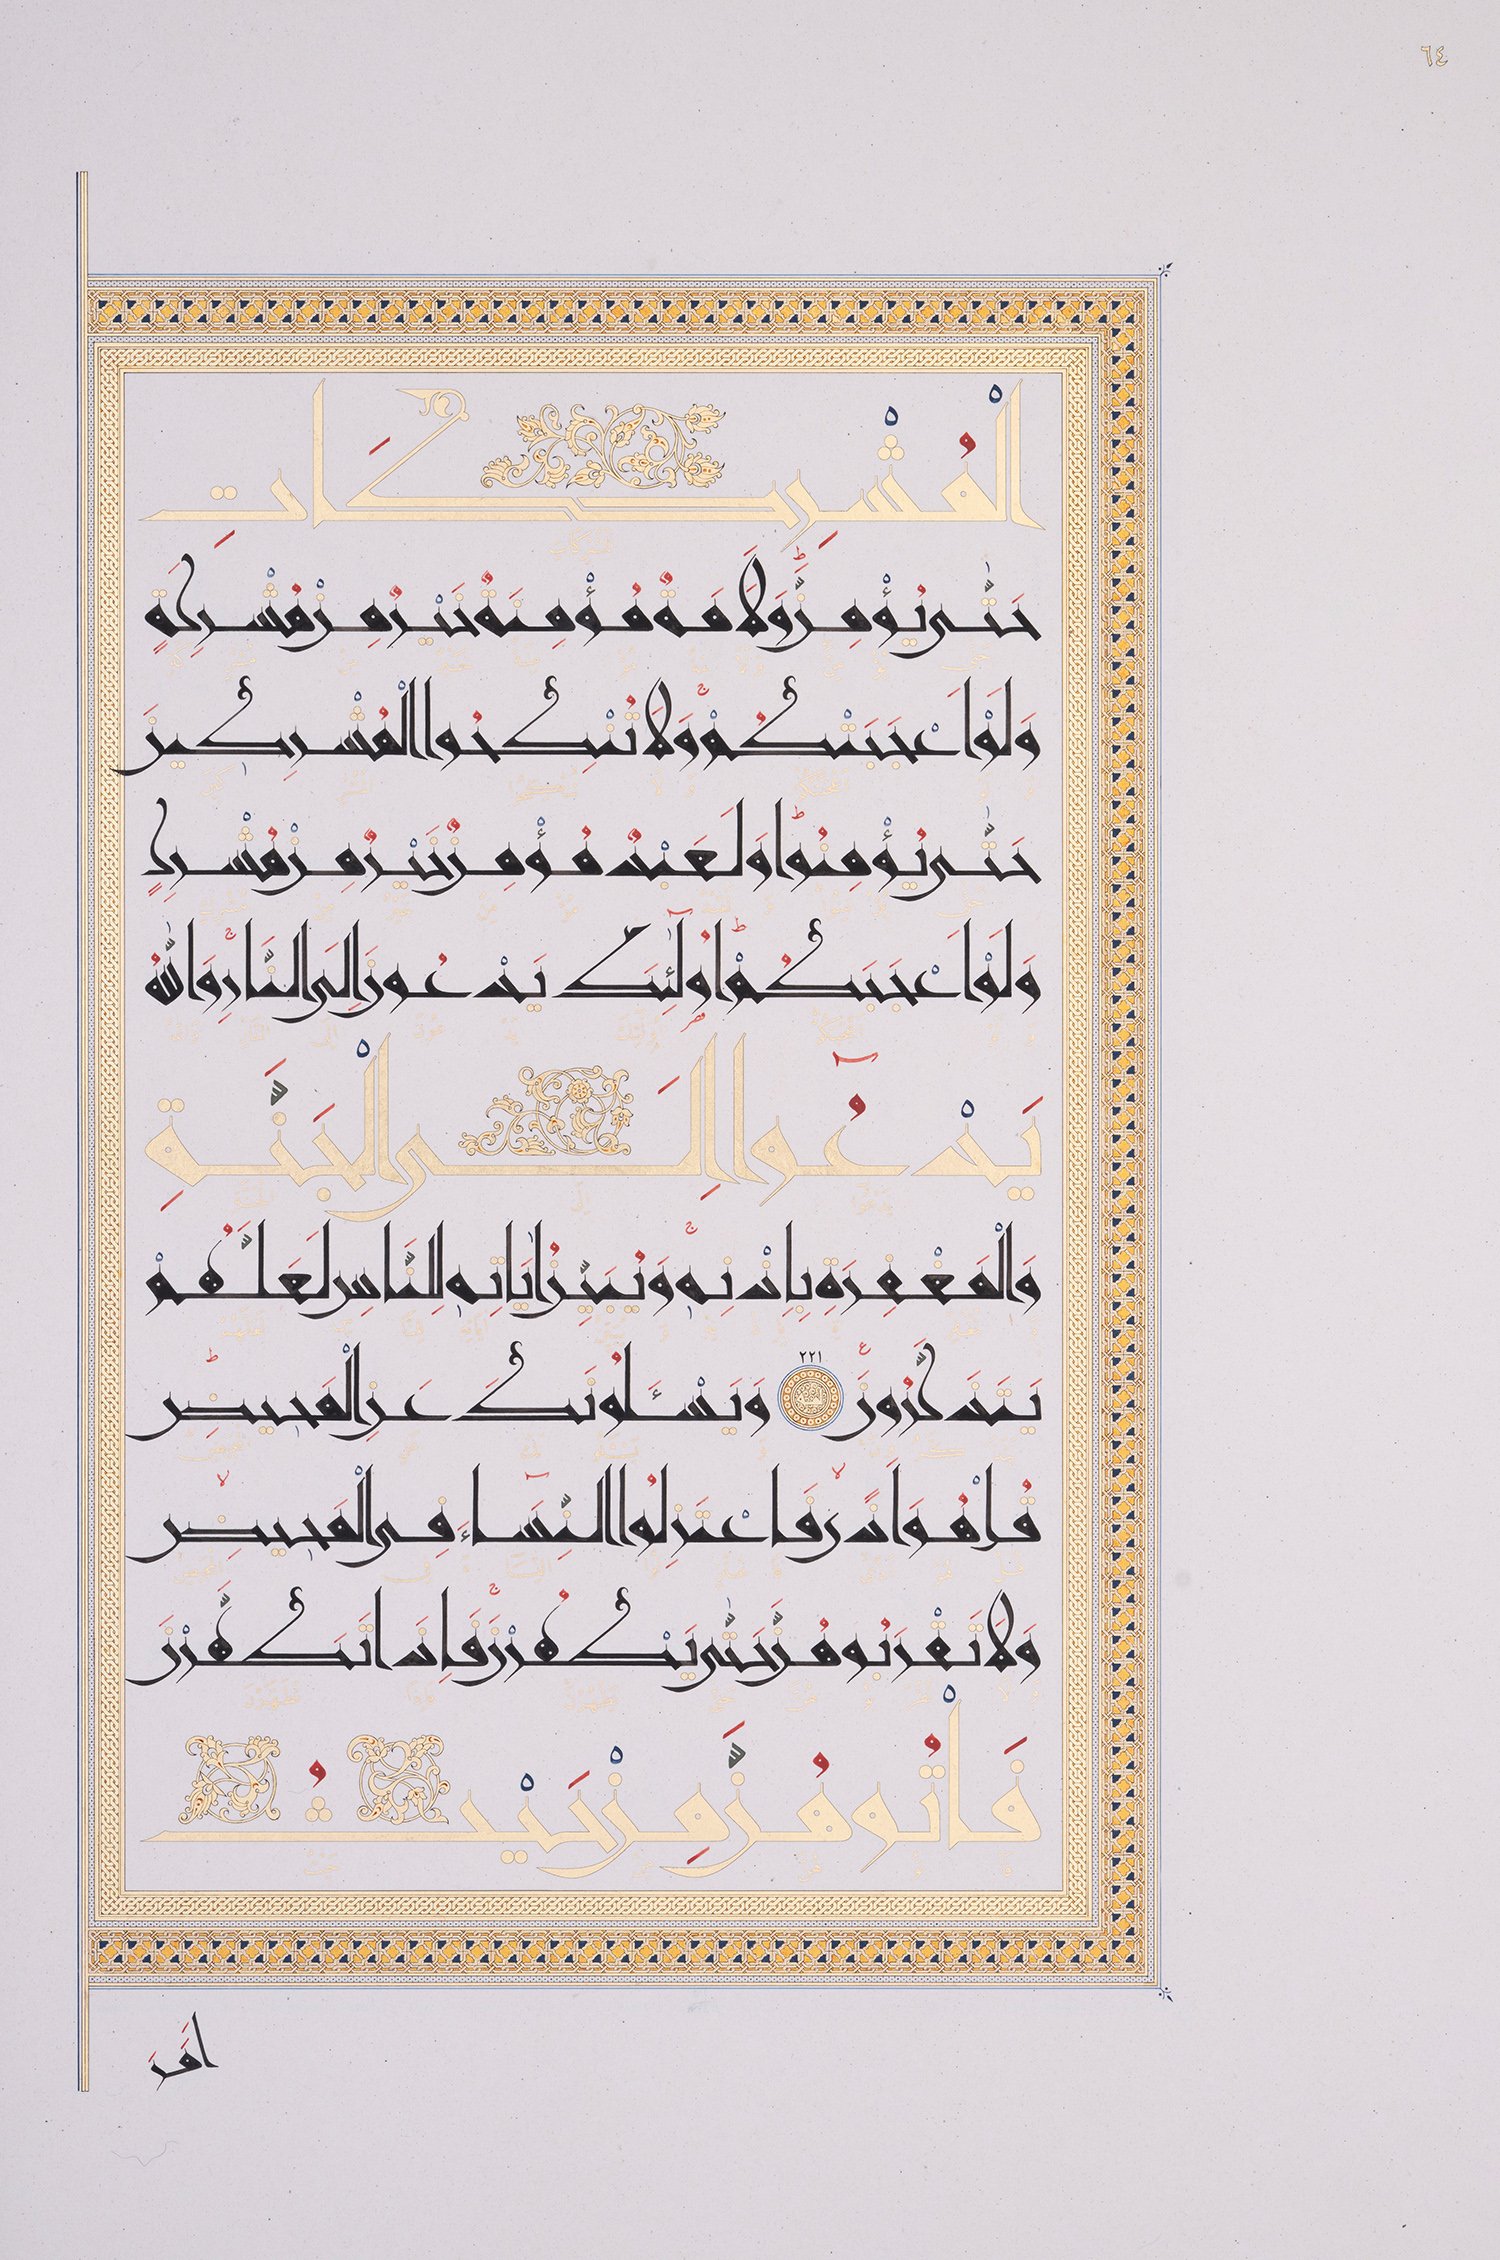 ٦٤
الْمُشْرِكَاتِ
حَتَّىٰ يُؤْمِنَّ ۚ وَلَأَمَةٌ مُؤْمِنَةٌ خَيْرٌ مِنْ مُشْرِكَةٍ
وَلَوْ أَعْجَبَتْكُمْ ۗ وَلَا تُنْكِحُوا الْمُشْرِكِينَ
حَتَّىٰ يُؤْمِنُوا ۚ وَلَعَبْدٌ مُؤْمِنٌ خَيْرٌ مِنْ مُشْرِكٍ
وَلَوْ أَعْجَبَكُمْ ۗ أُولَٰئِكَ يَدْعُونَ إِلَى النَّارِ ۖ وَاللَّهُ
يَدْعُوا إِلَى الْجَنَّةِ
وَالْمَغْفِرَةِ بِإِذْنِهِ ۖ وَيُبَيِّنُ آيَاتِهِ لِلنَّاسِ لَعَلَّهُمْ
يَتَذَكَّرُونَ ٢٢١ وَيَسْأَلُونَكَ عَنِ الْمَحِيضِ
قُلْ هُوَ أَذًى فَاعْتَزِلُوا النِّسَاءَ فِي الْمَحِيضِ
وَلَا تَقْرَبُوهُنَّ حَتَّىٰ يَطْهُرْنَ ۖ فَإِذَا تَطَهَّرْنَ
فَأْتُوهُنَّ مِنْ حَيْثُ
أَمَرَ